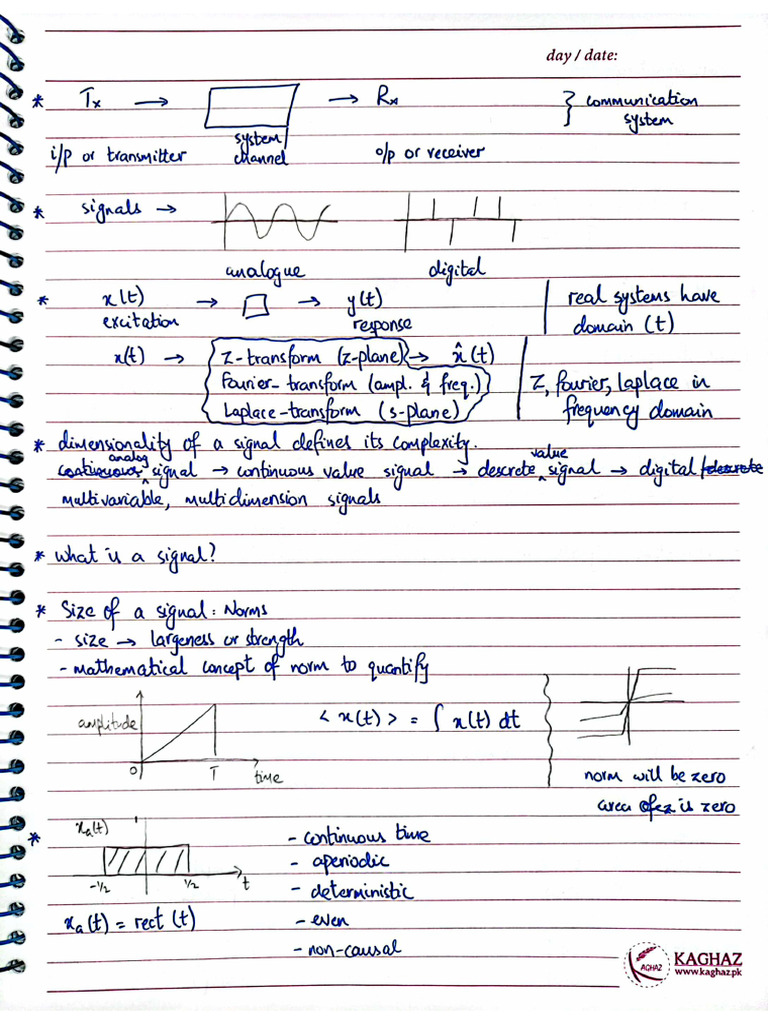 day / date:
* Tx → → Rx } communication system
system/ channel
i/p or transmitter o/p or receiver
* signals →
analogue digital
* x(t) → → y(t) real systems have
excitation response domain (t)
x(t) → Z-transform (z-plane) → x̂(t)
Fourier-transform (ampl. & freq.) Z, fourier, laplace in
Laplace-transform (s-plane) frequency domain
* dimensionality of a signal defines its complexity.
analog value
continuous signal → continuous value signal → descrete signal → digital /descrete
multivariable, multidimension signals
* what is a signal?
* Size of a signal: Norms
- size → largeness or strength
- mathematical concept of norm to quantify
amplitude < x(t) > = ∫ x(t) dt
0 T time
norm will be zero
area is zero
* xa(t) 1 - continuous time
- aperiodic
-1/2 1/2 t - deterministic
xa(t) = rect (t) - even
- non-causal
AGHAZ KAGHAZ
www.kaghaz.pk